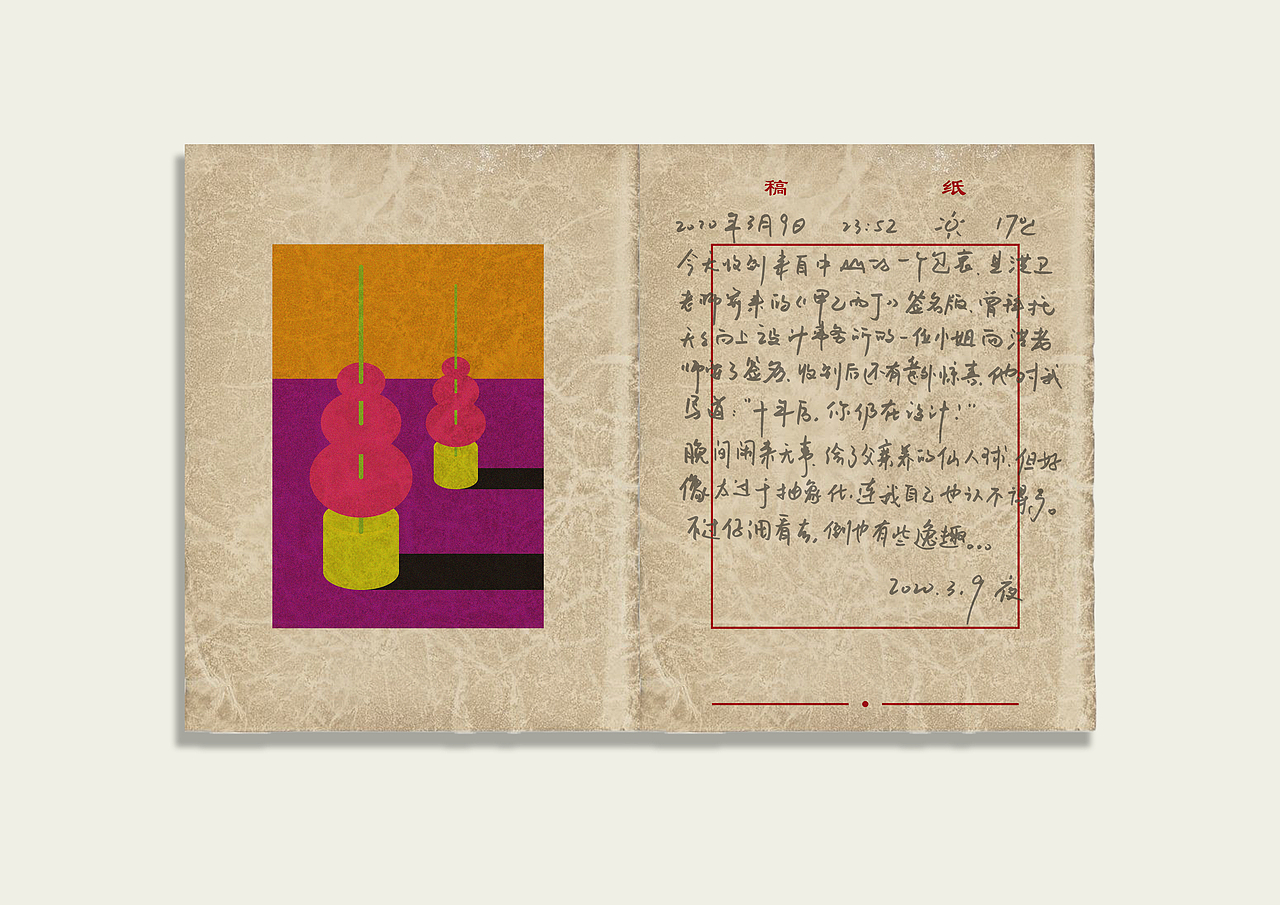 稿 纸
2020年3月9日 23:52 17℃
今天收到来自中山的一个包裹.是洪卫
老师寄来的《甲乙丙丁》签名版.曾拜托
天天向上设计事务所的一位小姐向洪老
师要了签名.收到后还有意外惊喜.他对我
写道:"十年后.你仍在设计!"
晚间闲来无事.绘了父亲养的仙人球.但好
像太过于抽象化.连我自己也认不得了。
不过仔细看去.倒也有些逸趣...
2020.3.9 夜